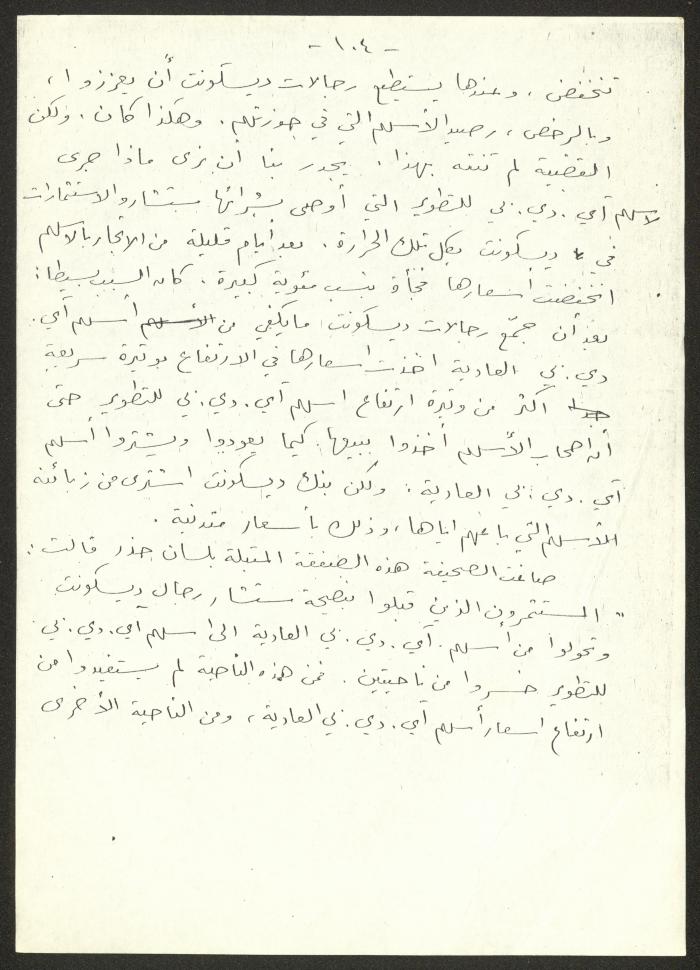 - ١٠٤ -
تنخفض ، وعندها يستطيع رجالات ديسكونت أن يعززوا ،
وبالرخص ، رصيد الأسهم التي في حوزتهم . وهكذا كان . ولكن
القضية لم تنته بهذا . يجدر بنا أن نرى ماذا جرى
لاسهم آي . دي . بي للتطوير التي أوصى بشرائها مستشارو الاستثمارات
في ديسكونت بكل تلك الحرارة . بعد أيام قليلة من الاتجار بالاسهم
انخفضت أسعارها فجأة بنسب مئوية كبيرة . كان السبب بسيطا :
بعد أن جمّع رجالات ديسكونت ما يكفي من الأسهم أسهم آي .
دي . بي العادية اخذت اسعارها في الارتفاع بوتيرة سريعة
جدا اكثر من وتيرة ارتفاع اسهم آي . دي . بي للتطوير حتى
أن اصحاب الأسهم أخذوا ببيعها . كيما يعودوا ويشتروا أسهم
آي . دي . بي العادية . ولكن بنك ديسكونت اشترى من زبائنه
الأسهم التي باعهم اياها ، وذلك بأسعار متدنية .
صاغت الصحيفة هذه الصفقة المتبلة بلسان حذر قالت :
" المستثمرون الذين قبلوا نصيحة مستشار رجال ديسكونت
وتحولوا من أسهم . آي . دي . بي العادية الى اسهم آي . دي . بي
للتطوير خسروا من ناحيتين . فمن هذه الناحية لم يستفيدوا من
ارتفاع اسعار أسهم آي . دي . بي العادية ، ومن الناحية الأخرى